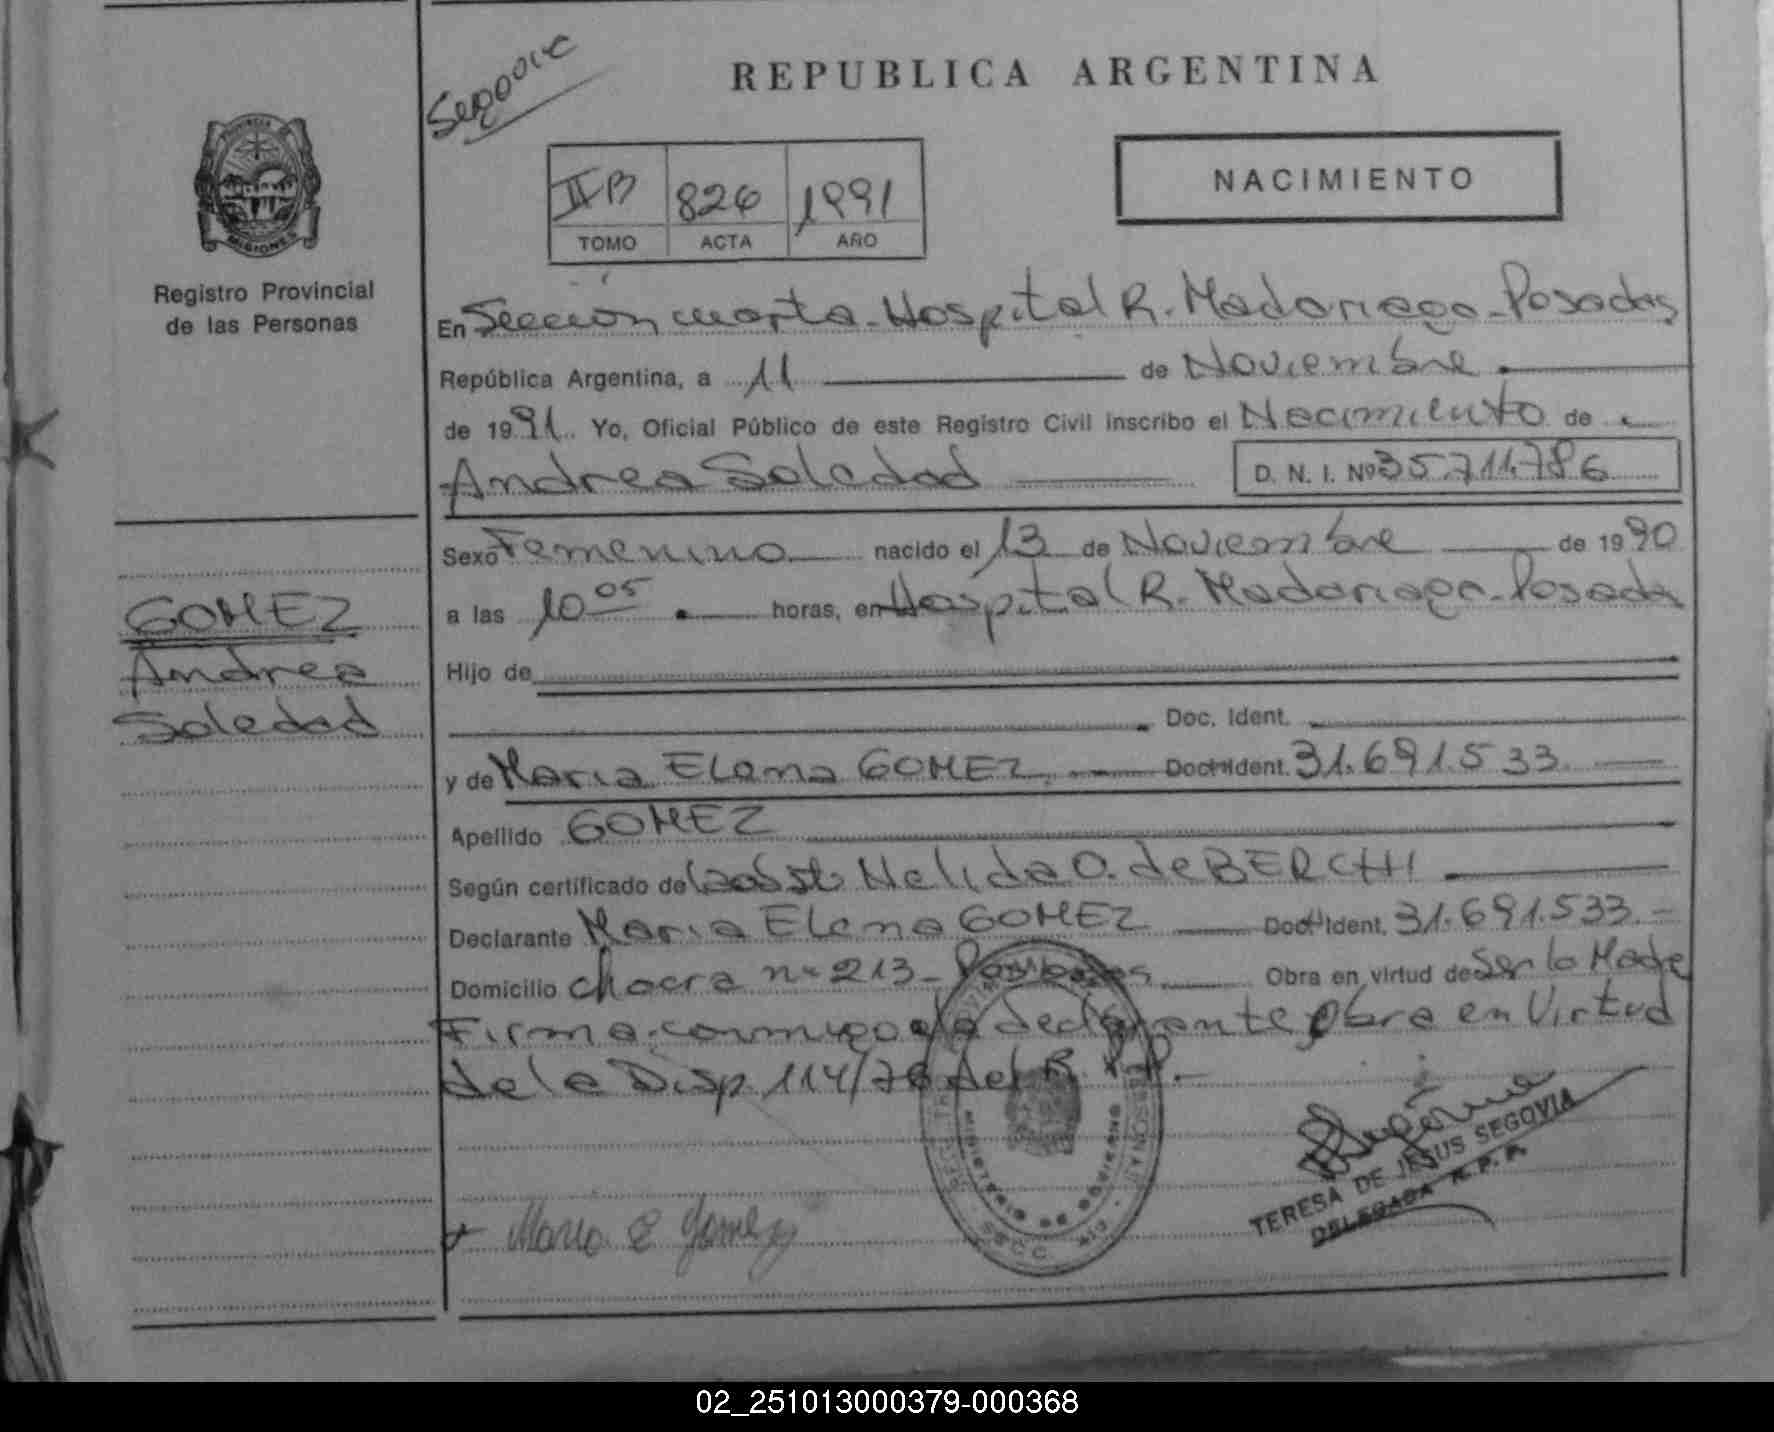 Segovia
REPUBLICA ARGENTINA
PROVINCIA DE
MISIONES
Registro Provincial
de las Personas
II B 826 1991
TOMO ACTA AÑO
NACIMIENTO
En Sección cuarta - Hospital R. Madariaga - Posadas
República Argentina, a 11 de Noviembre
de 1991. Yo, Oficial Público de este Registro Civil inscribo el Nacimiento de
Andrea Soledad D. N. I. Nº 35.711.786
Sexo Femenino nacido el 13 de Noviembre de 1990
a las 10 05 horas, en Hospital R. Madariaga - Posadas
Hijo de
Doc. Ident.
y de Maria Elena GOMEZ Doc. Ident. 31.691.533
Apellido GOMEZ
Según certificado de la obst. Nelida O. de BERCHI
Declarante Maria Elena GOMEZ Doc. Ident. 31.691.533 -
Domicilio chacra nº 213 - Obra en virtud de Ser la Madre
Firma conmigo la declarante obra en Virtud
de la Disp. 114/78 del R. P. P. -
GOMEZ
Andrea
Soledad
MINISTERIO DE GOBIERNO
Maria E Gomez
TERESA DE JESUS SEGOVIA
DELEGADA R. P. P.
02_251013000379-000368